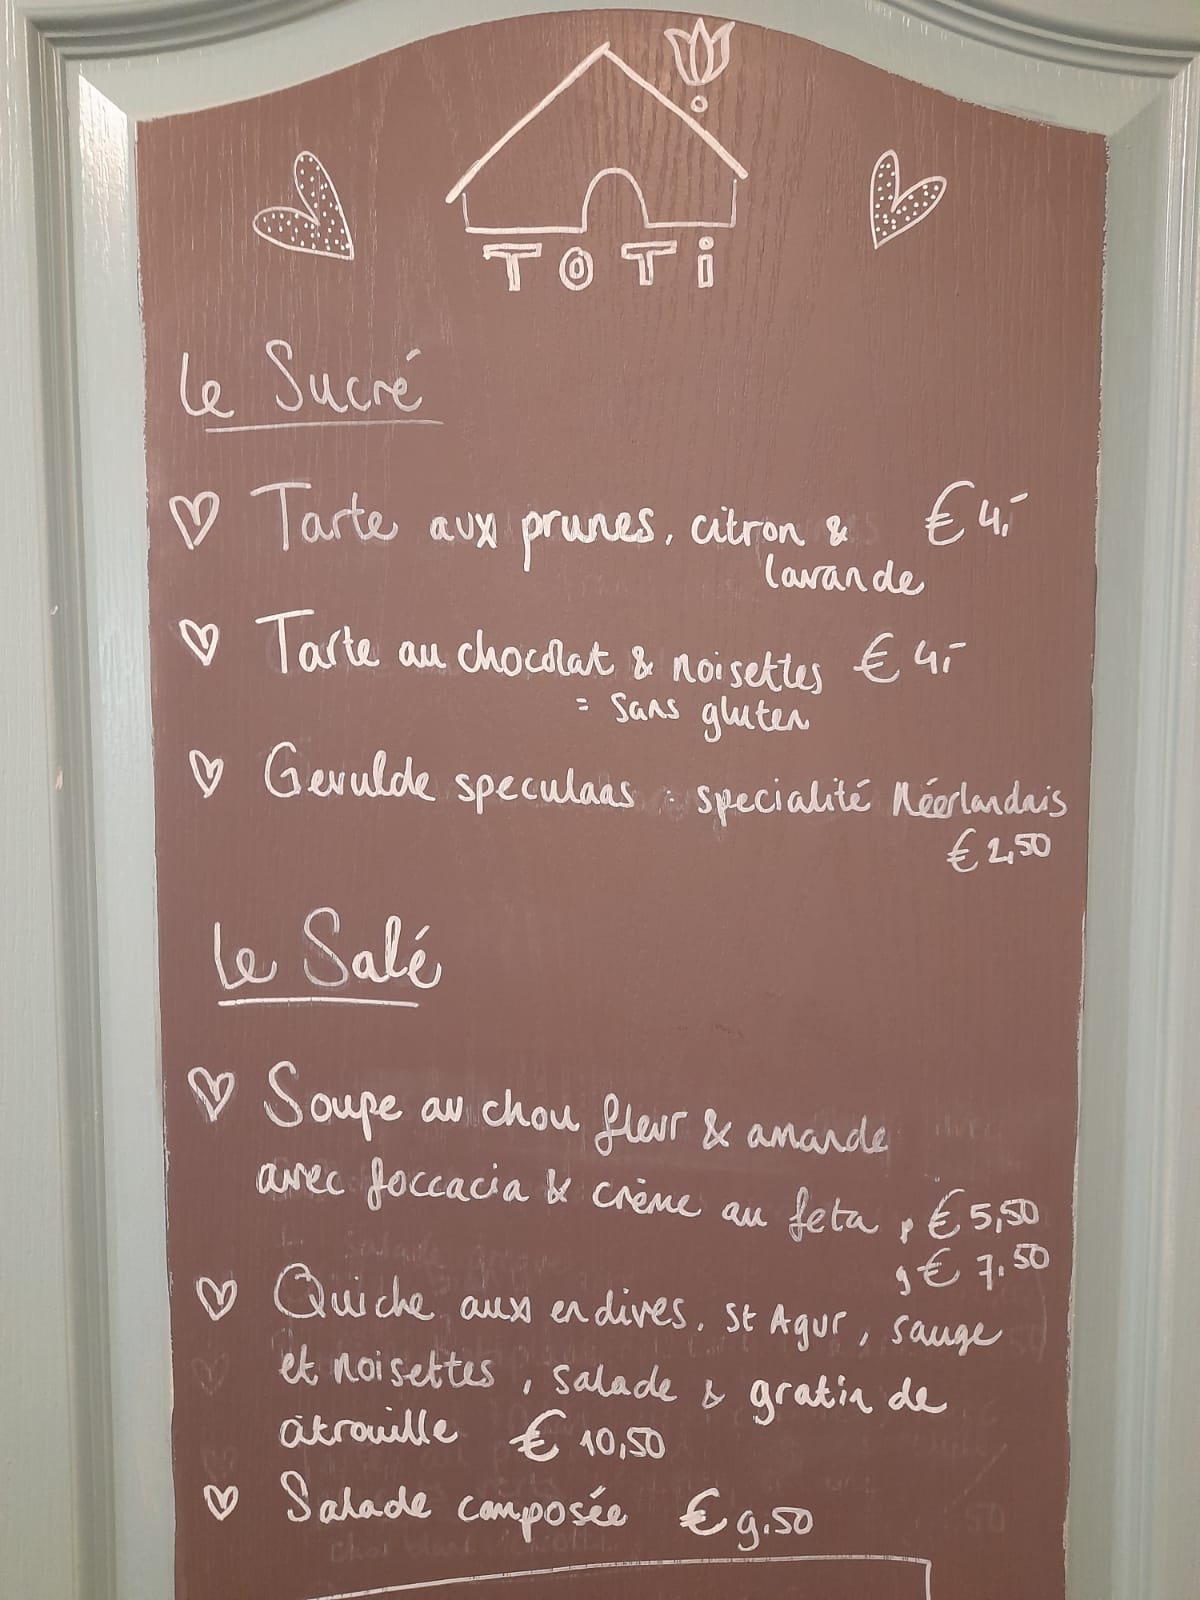 TOTi
Le Sucré
Tarte aux prunes, citron & € 4,-
lavande
Tarte au chocolat & noisettes € 4,-
= sans gluten
Gevulde speculaas : specialité Néerlandais
€ 2,50
Le Salé
Soupe au chou fleur & amande
avec foccacia & crème au feta, p € 5,50
g € 7.50
Quiche aux endives, St Agur, sauge
et noisettes, salade & gratin de
citrouille € 10,50
Salade composée € 9.50